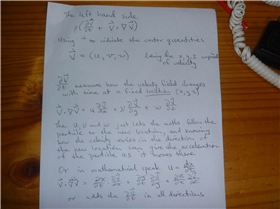 The left hand side
ρ(∂V⃗/∂t + V⃗·∇V⃗)
Using → to indicate the vector quantities
V⃗ = (u, v, w) being the x, y, z components
of velocity
∂V⃗/∂t measures how the velocity field changes
with time at a fixed position (x, y, z)
V⃗·∇V⃗ = u ∂V⃗/∂x + v ∂V⃗/∂y + w ∂V⃗/∂z
the u, v and w just lets the maths follow the
particle to the new location, and knowing
how the velocity varies in the direction of
the new location can give the acceleration
of the particle as it moves there
Or in mathematical speak u = dx/dt
V⃗·∇V⃗ =
or adds the in all directions